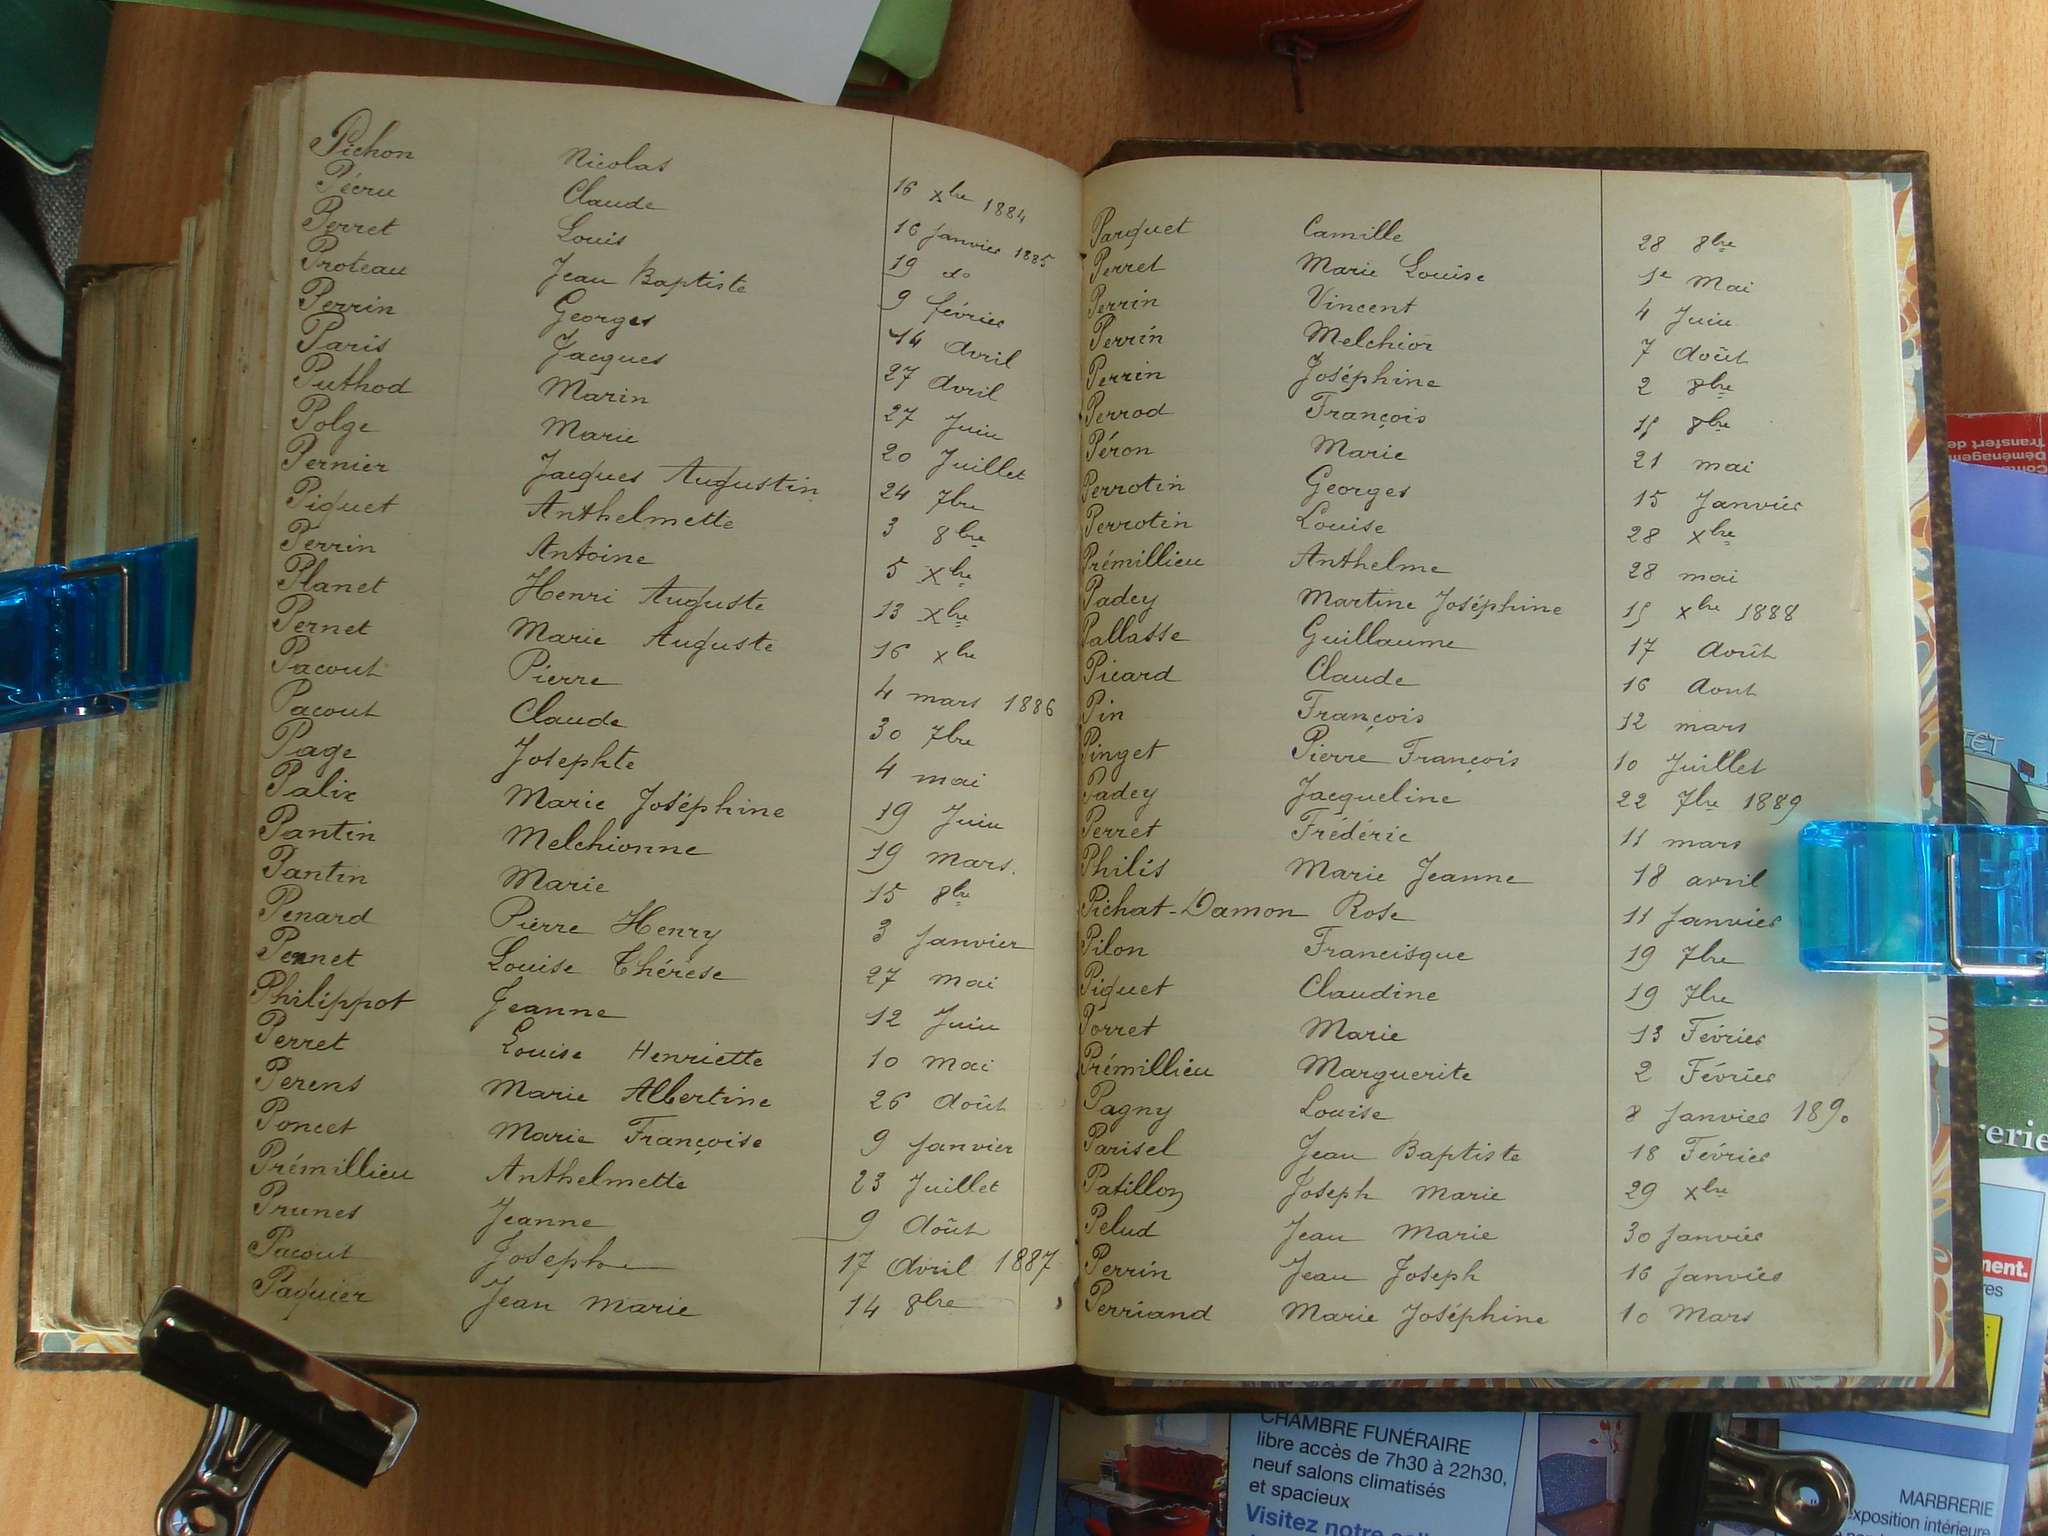 Pichon Nicolas 16 xbre 1884
Pécru Claude 16 Janvier 1885
Perret Louis 19 do
Proteau Jean Baptiste 9 février
Perrin Georges 14 Avril
Paris Jacques 27 Avril
Puthod Marin 27 Juin
Polge Marie 20 Juillet
Pernier Jacques Augustin 24 7bre
Piquet Anthelmette 3 8bre
Perrin Antoine 5 xbre
Planet Henri Auguste 13 xbre
Pernet Marie Auguste 16 xbre
Pacout Pierre 4 mars 1886
Pacout Claude 30 7bre
Page Josephte 4 mai
Palix Marie Joséphine 19 Juin
Pantin Melchionne 19 mars.
Pantin Marie 15 8bre
Penard Pierre Henry 3 Janvier
Pennet Louise Thérèse 27 mai
Philippot Jeanne 12 Juin
Perret Louise Henriette 10 mai
Perens Marie Albertine 26 Août
Poncet Marie Françoise 9 Janvier
Prémillieu Anthelmette 23 Juillet
Prunes Jeanne 9 Août
Pacout Joseph 17 Avril 1887
Paquier Jean Marie 14 8bre
Parquet Camille 28 8bre
Perret Marie Louise 1e Mai
Perrin Vincent 4 Juin
Perrin Melchior 7 Août
Perrin Joséphine 2 8bre
Perrod François 15 8bre
Péron Marie 21 mai
Perrotin Georges 15 Janvier
Perrotin Louise 28 xbre
Prémillieu Anthelme 28 mai
Padey Martine Joséphine 15 xbre 1888
Pallasse Guillaume 17 Août
Picard Claude 16 Aout
Pin François 12 mars
Pinget Pierre François 10 Juillet
Padey Jacqueline 22 7bre 1889
Perret Frédéric 11 mars
Philis Marie Jeanne 18 avril
Pichat-Damon Rose 11 Janvier
Pilon Francisque 19 7bre
Piquet Claudine 19 7bre
Porret Marie 13 Février
Prémillieu Marguerite 2 Février
Pagny Louise 8 Janvier 1890
Parisel Jean Baptiste 18 Février
Patillon Joseph Marie 29 xbre
Pelud Jean Marie 30 Janvier
Perrin Jean Joseph 16 Janvier
Perriand Marie Joséphine 10 Mars
Déménagem
Transfert de
rerie
ment.
CHAMBRE FUNÉRAIRE
libre accès de 7h30 à 22h30,
neuf salons climatisés
et spacieux
Visitez notre
MARBRERIE
exposition intérieure